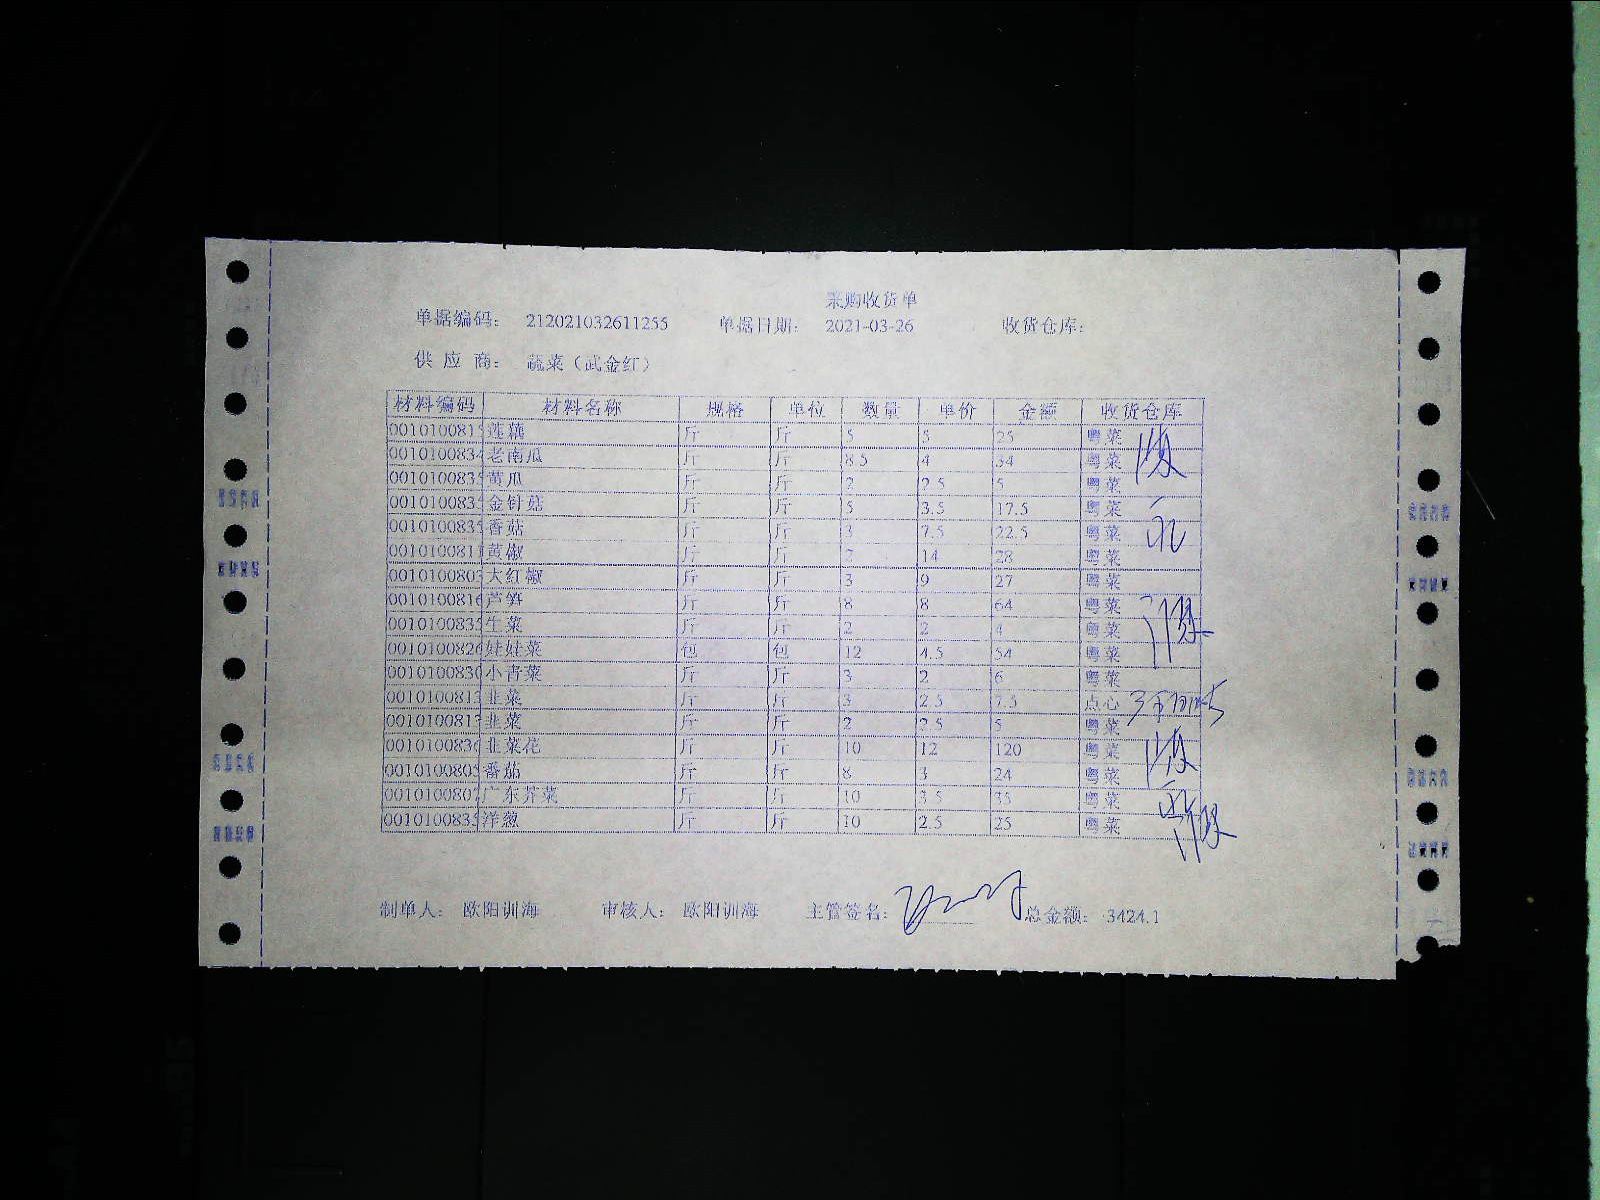 采购收货单
单据编码： 212021032611255 单据日期： 2021-03-26 收货仓库：
供 应 商： 蔬菜（武金红）
材料编码 材料名称 规格 单位 数量 单价 金额 收货仓库
0010100815 莲藕 斤 斤 5 5 25 粤菜
0010100834 老南瓜 斤 斤 8.5 4 34 粤菜
001010083 黄瓜 斤 斤 2 2.5 5 粤菜
001010083 金针菇 斤 斤 5 3.5 17.5 粤菜
001010083 香菇 斤 斤 3 7.5 22.5 粤菜
001010081 黄椒 斤 斤 2 14 28 粤菜
001010080 大红椒 斤 斤 3 9 27 粤菜
0010100816 芦笋 斤 斤 8 8 64 粤菜
001010083 生菜 斤 斤 2 2 4 粤菜
0010100826 娃娃菜 包 包 12 4.5 54 粤菜
0010100830 小青菜 斤 斤 3 2 6 粤菜
001010081 韭菜 斤 斤 3 2.5 7.5 点心
001010081 韭菜 斤 斤 2 2.5 5 粤菜
001010083 韭菜花 斤 斤 10 12 120 粤菜
001010080 番茄 斤 斤 8 3 24 粤菜
001010080 广东芥菜 斤 斤 10 3.5 35 粤菜
001010083 洋葱 斤 斤 10 2.5 25 粤菜
制单人： 欧阳训海 审核人： 欧阳训海 主管签名： 总金额： 3424.1